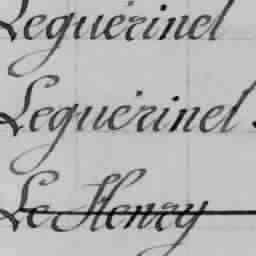 Leguérinel
Leguérinel
Le Henry